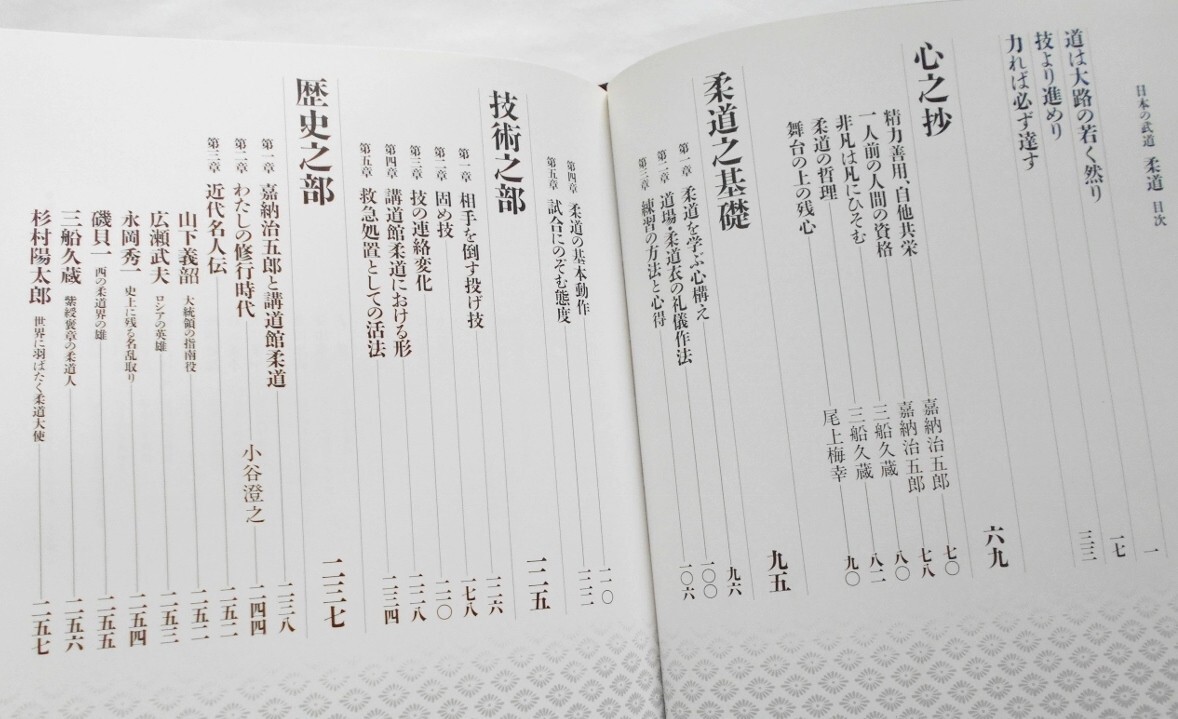 日本の武道 柔道 目次
道は大路の若く然り 一
技より進めり 一七
力れば必ず達す 三三
心之抄 六九
精力善用・自他共栄 嘉納治五郎 七〇
一人前の人間の資格 嘉納治五郎 七八
非凡は凡にひそむ 三船久蔵 八〇
柔道の哲理 三船久蔵 八二
舞台の上の残心 尾上梅幸 九〇
柔道之基礎 九五
第一章 柔道を学ぶ心構え 九六
第二章 道場・柔道衣の礼儀作法 一〇〇
第三章 練習の方法と心得 一〇六
第四章 柔道の基本動作 一一〇
第五章 試合にのぞむ態度 一二二
技術之部 一二五
第一章 相手を倒す投げ技 一二六
第二章 固め技 一七八
第三章 技の連絡変化 二二〇
第四章 講道館柔道における形 二二八
第五章 救急処置としての活法 二三四
歴史之部 二三七
第一章 嘉納治五郎と講道館柔道 二三八
第二章 わたしの修行時代 小谷澄之 二四四
第三章 近代名人伝 二五二
山下義韶 大統領の指南役 二五二
広瀬武夫 ロシアの英雄 二五三
永岡秀一 史上に残る名乱取り 二五四
磯貝一 西の柔道界の雄 二五五
三船久蔵 紫綬褒章の柔道人 二五六
杉村陽太郎 世界に羽ばたく柔道大使 二五七